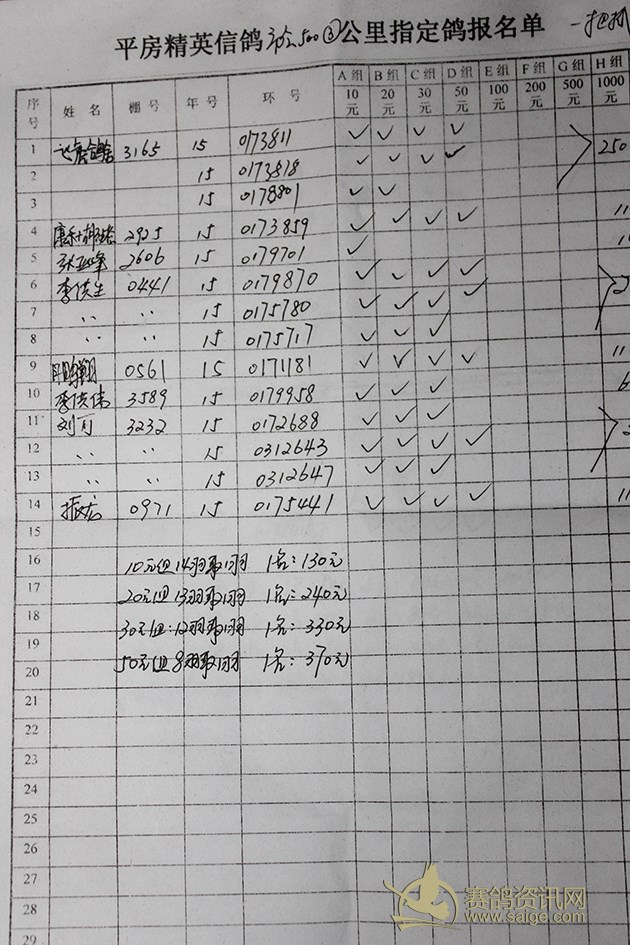 平房精英信鸽 500 ③ 公里指定鸽报名单
序号 姓名 棚号 年号 环号 A组 10元 B组 20元 C组 30元 D组 50元 E组 100元 F组 200元 G组 500元 H组 1000元
1 3165 15 0173811 ✓ ✓ ✓ ✓ 250
2 15 0173818 ✓ ✓ ✓ ✓
3 15 0178801 ✓ ✓
4 2925 15 0173859 ✓ ✓ ✓ ✓ 11
5 2606 15 0179701 ✓
6 李洪生 0441 15 0179870 ✓ ✓ ✓ ✓
7 〃 〃 15 0175780 ✓ ✓ ✓ ✓
8 〃 〃 15 0175717 ✓ ✓ ✓
9 0561 15 0171181 ✓ ✓ ✓ ✓ 11
10 李洪伟 3589 15 0179958 ✓ ✓ ✓ 6
11 刘可 3232 15 0172688 ✓ ✓ ✓
12 〃 〃 15 0312643 ✓ ✓ ✓ ✓
13 〃 〃 15 0312647 ✓ ✓ ✓
14 0971 15 0175441 ✓ ✓ ✓ ✓ 11
15
16 10元组14羽取1羽 1名:130元
17 20元组13羽取1羽 1名:240元
18 30元组:12羽取1羽 1名:330元
19 50元组8羽取1羽 1名:370元
20
21
22
23
24
25
26
27
28
29
赛鸽资讯网
www.saige.com